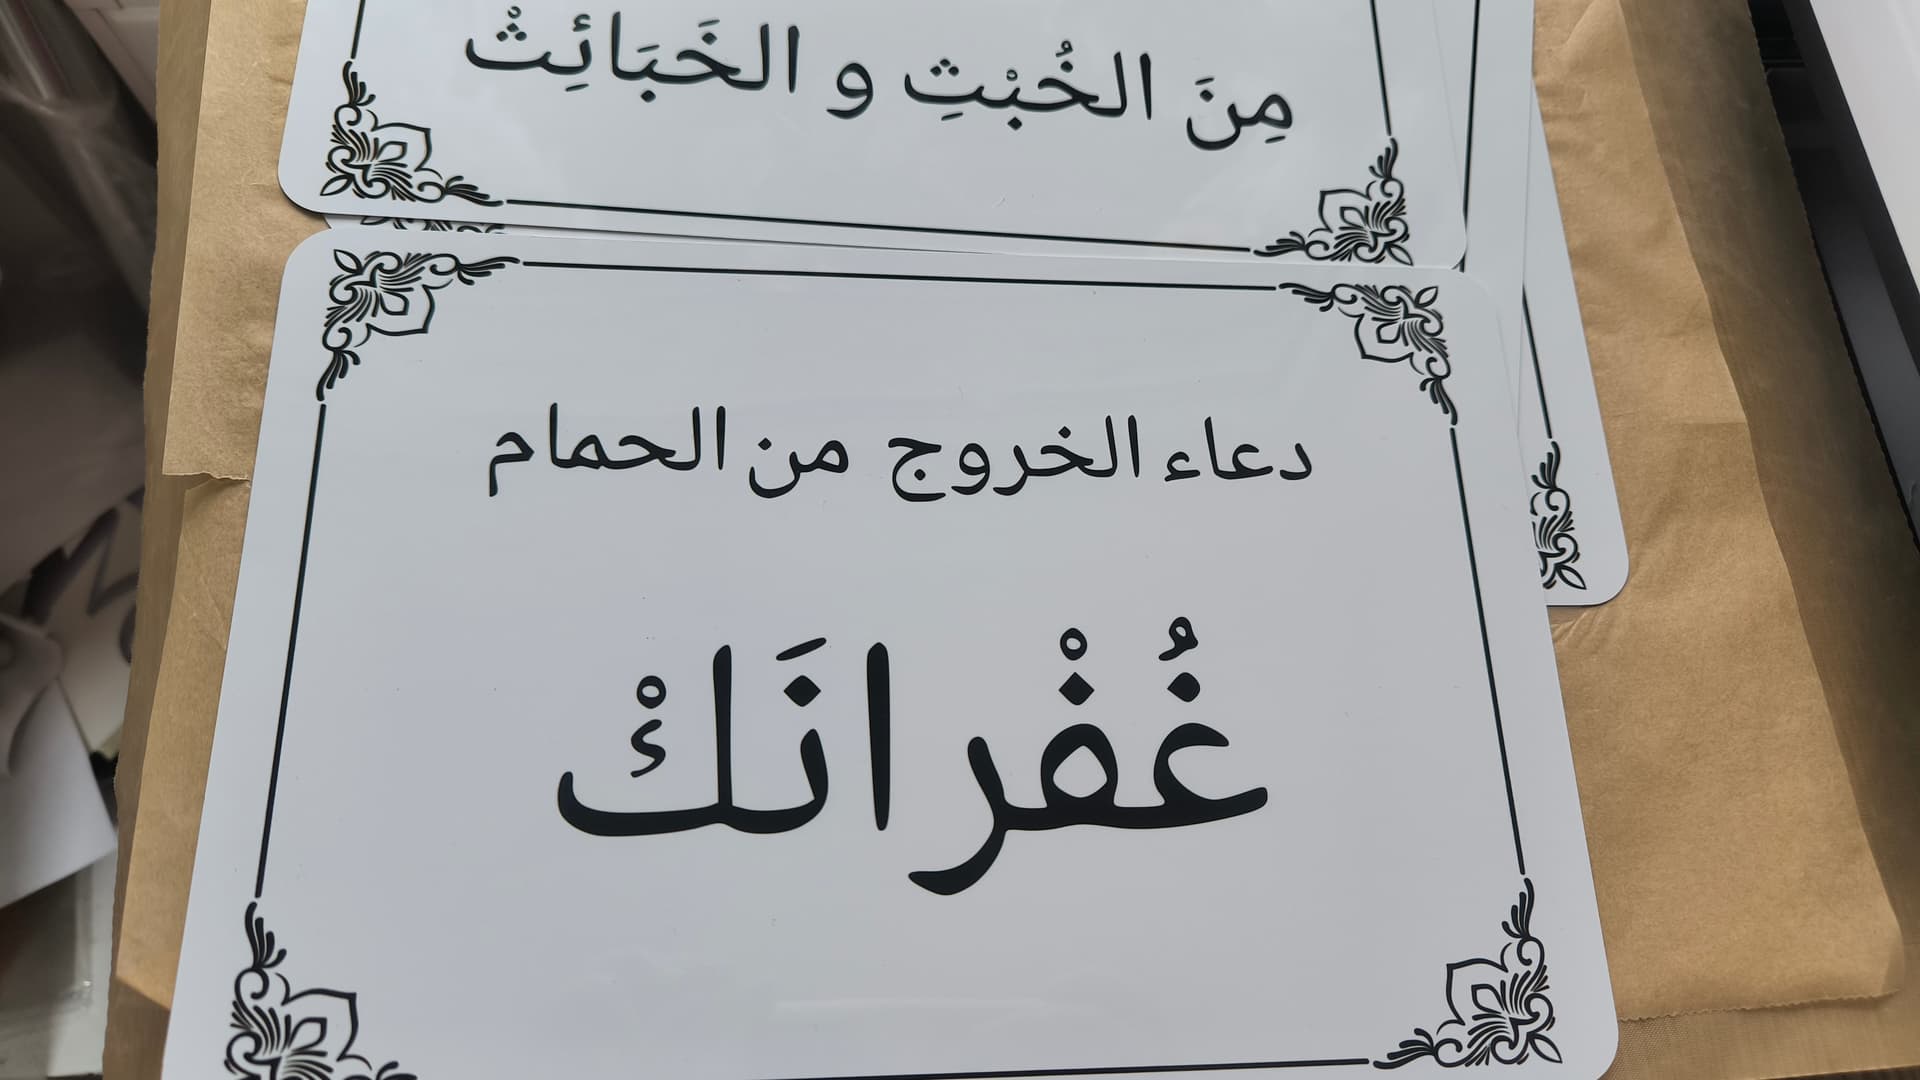 مِنَ الخُبْثِ و الخَبَائِثْ
دعاء الخروج من الحمام
غُفْرانَكْ